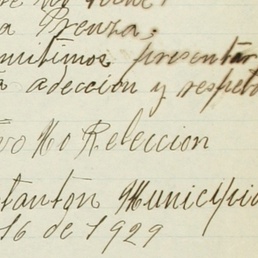 a Prenza,
mitimos presentar
adeccion y respeto
vo No Releccion
tanton Municipi
16 de 1929